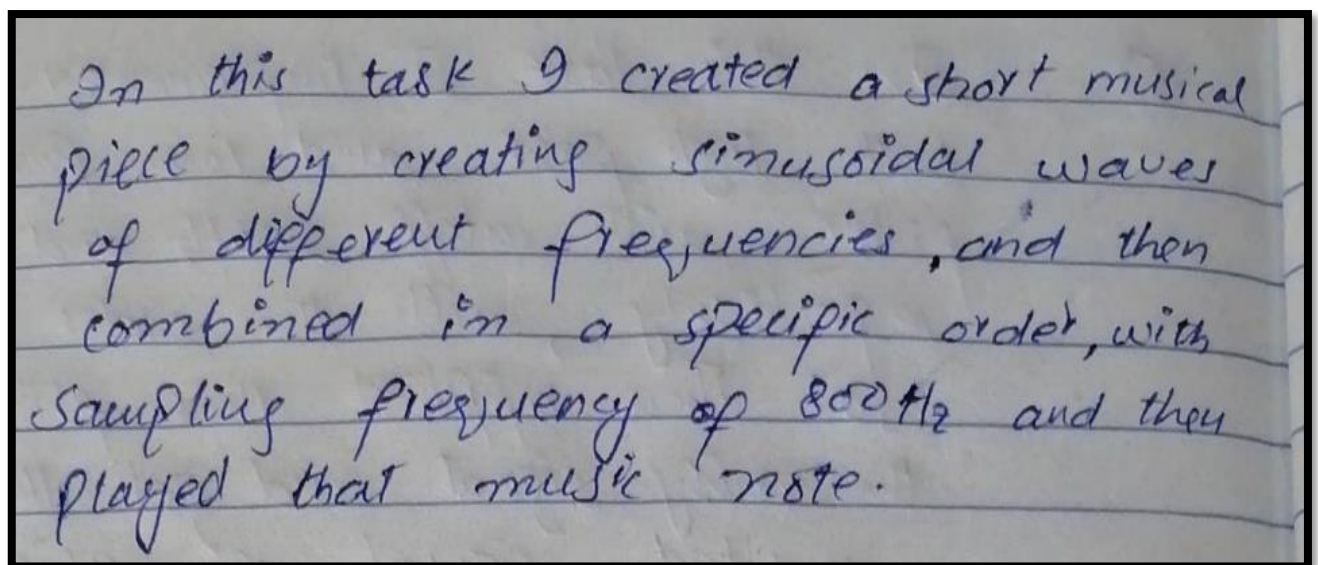 In this task I created a short musical
piece by creating sinusoidal waves
of different frequencies, and then
combined in a specific order, with
Sampling frequency of 800 Hz and then
played that music note.